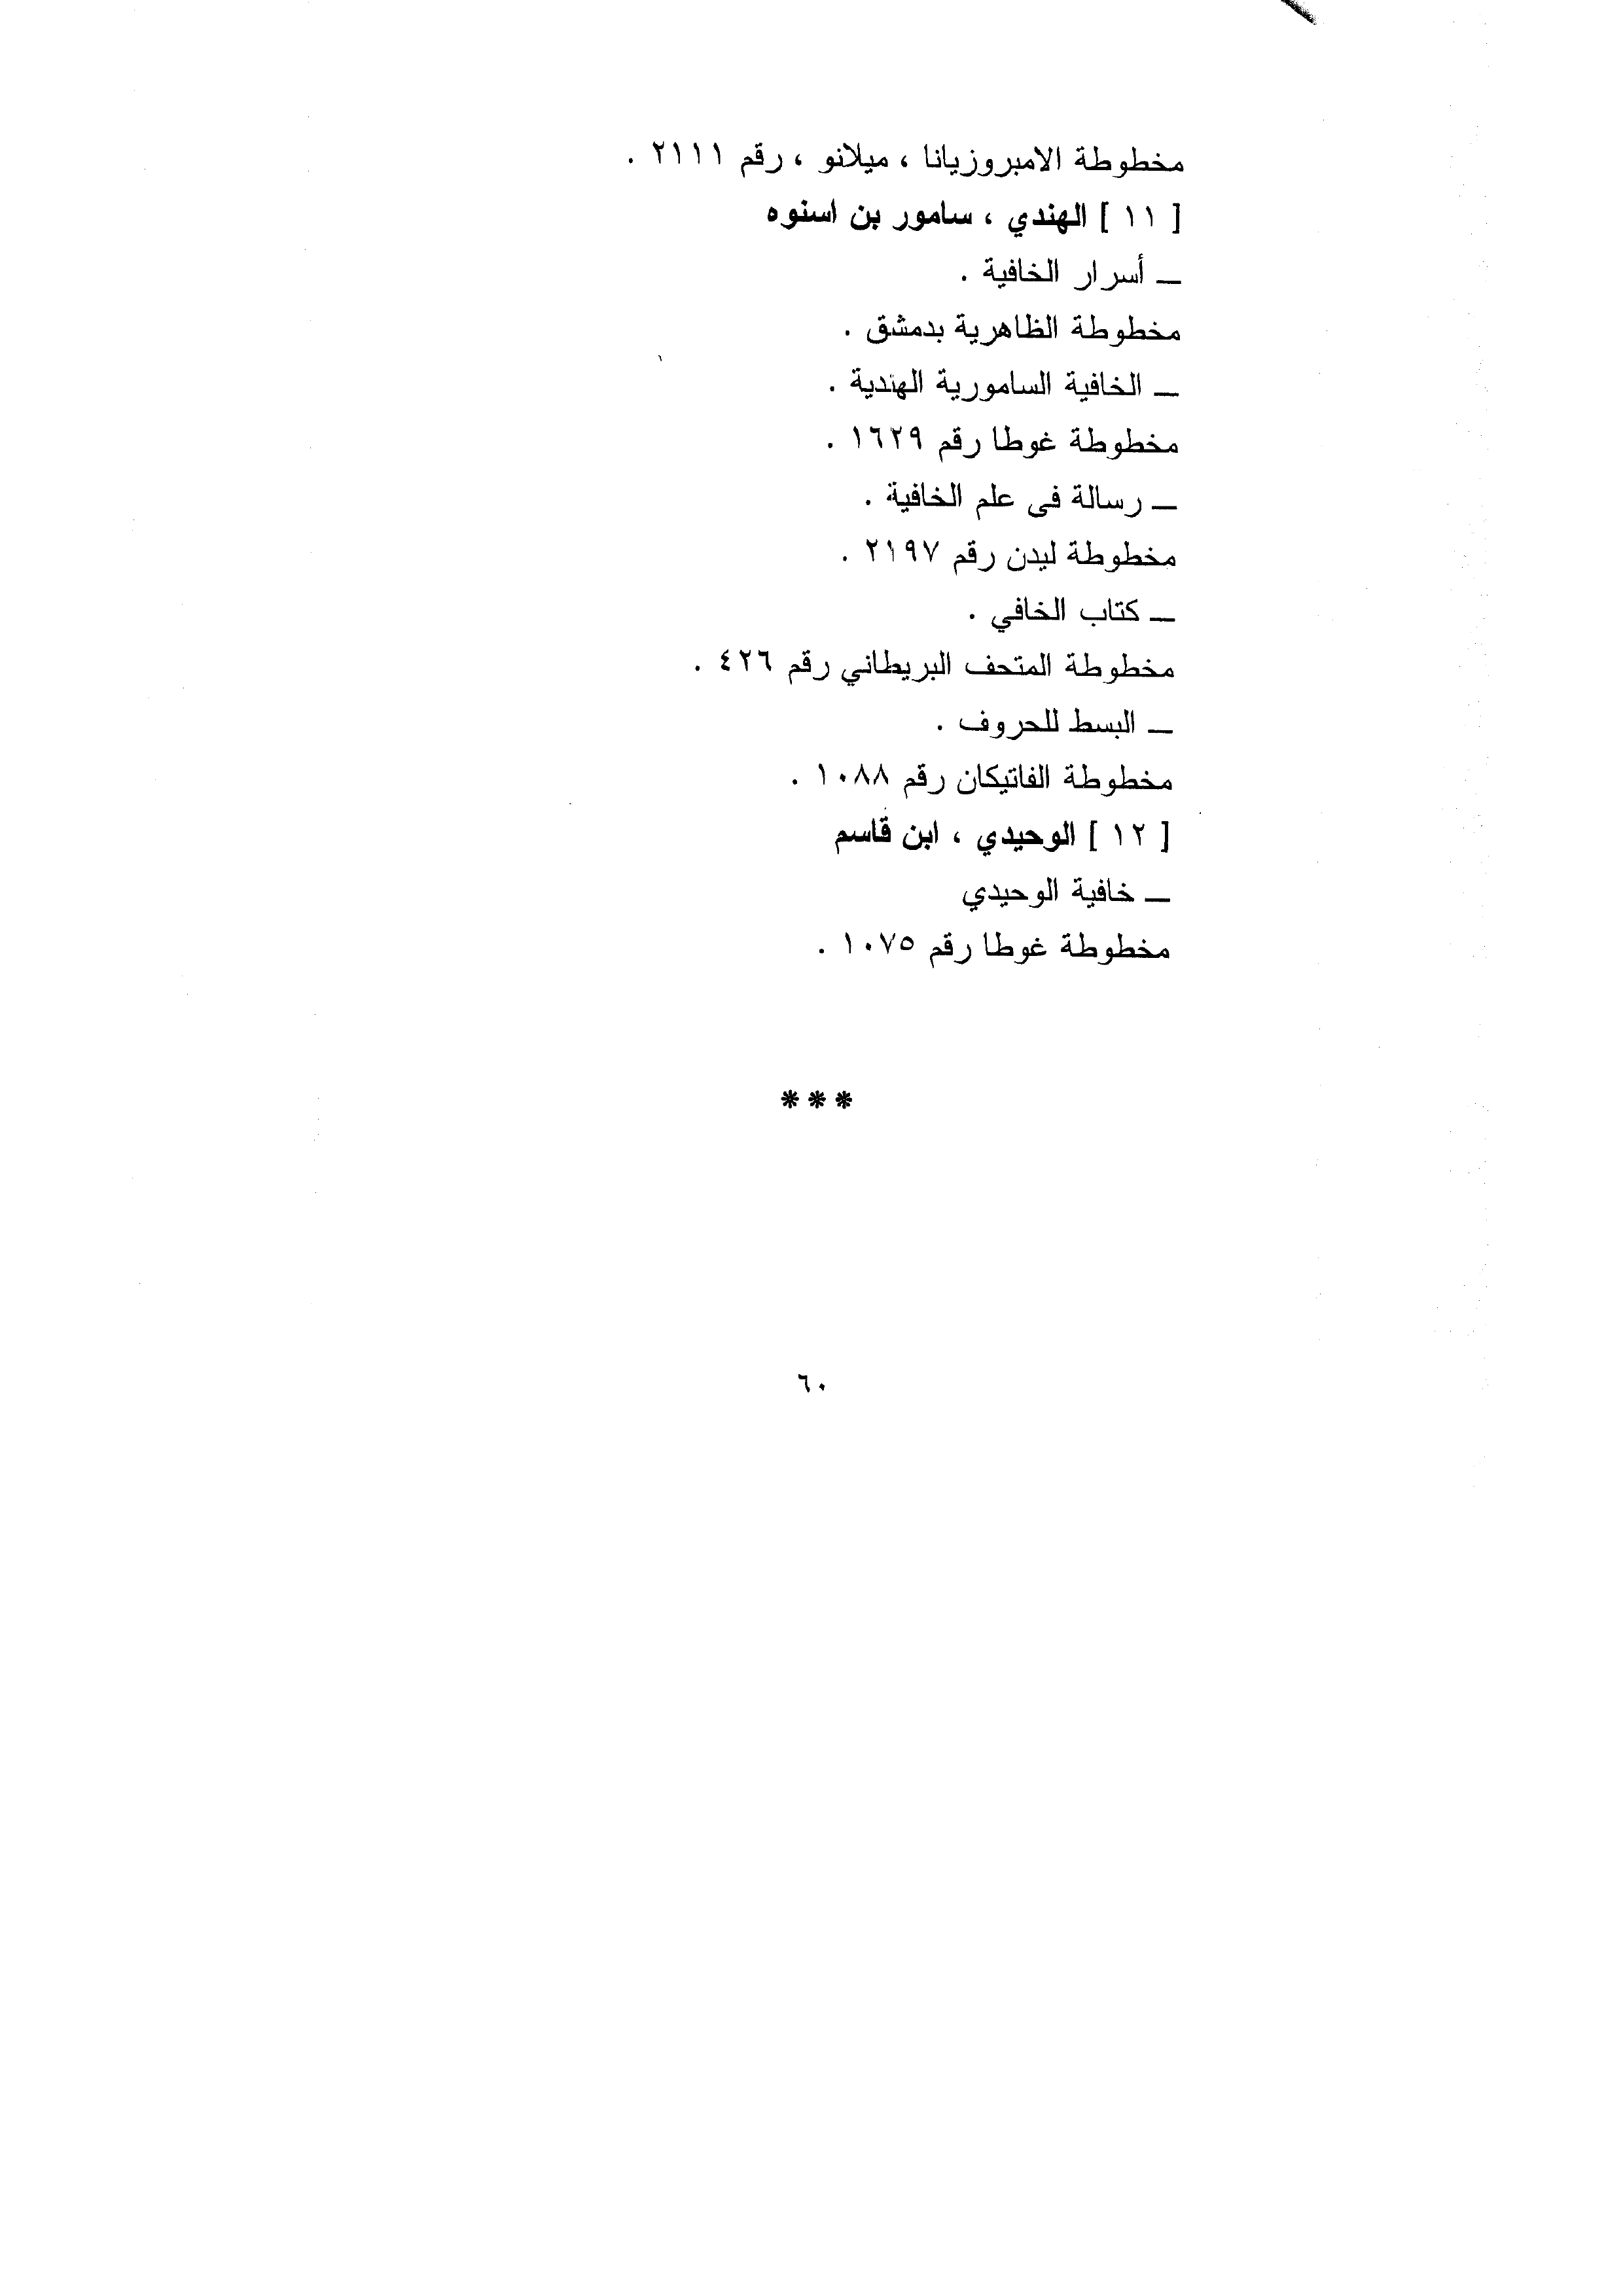 مخطوطة الامبروزيانا ، ميلانو ، رقم ٢١١١ .
[ ١١ ] الهندي ، سامور بن اسنوه
ــ أسرار الخافية .
مخطوطة الظاهرية بدمشق .
ــ الخافية السامورية الهندية .
مخطوطة غوطا رقم ١٦٢٩ .
ــ رسالة فى علم الخافية .
مخطوطة ليدن رقم ٢١٩٧ .
ــ كتاب الخافي .
مخطوطة المتحف البريطاني رقم ٤٢٦ .
ــ البسط للحروف .
مخطوطة الفاتيكان رقم ١٠٨٨ .
[ ١٢ ] الوحيدي ، ابن قاسم
ــ خافية الوحيدي
مخطوطة غوطا رقم ١٠٧٥ .
***
٦٠